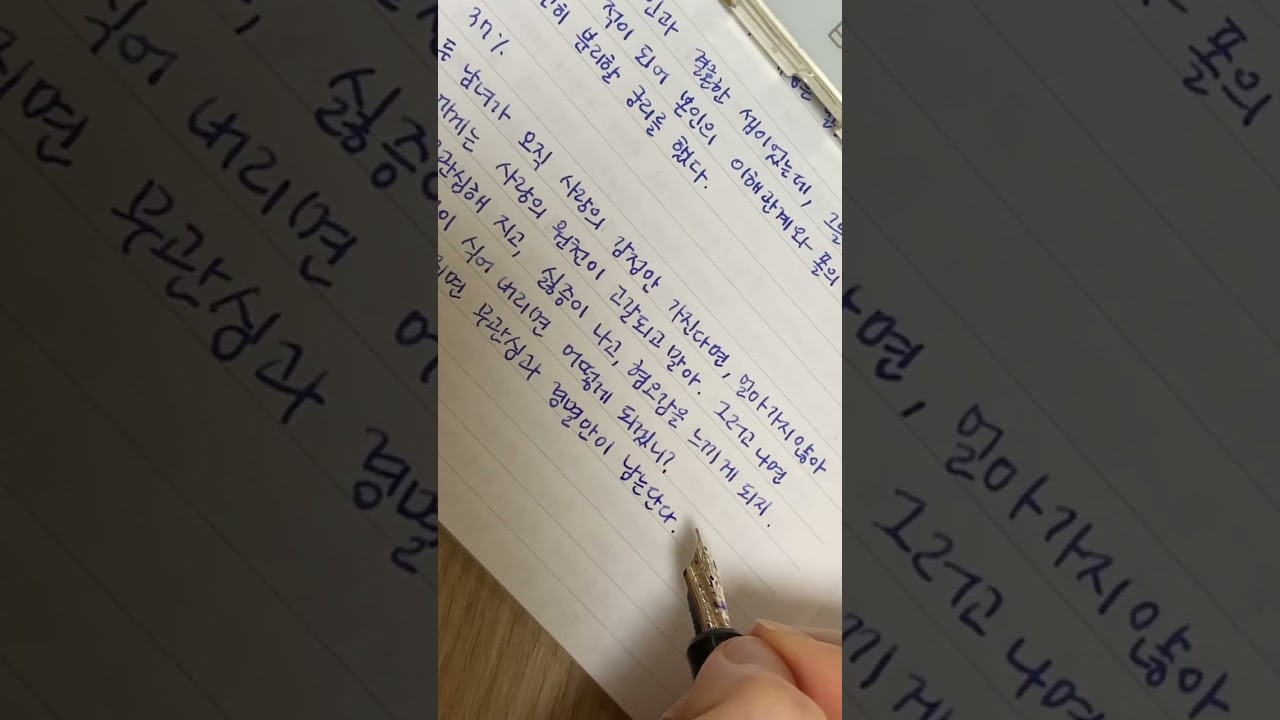 인과 결혼한 셈이었는데, 그들
직이 되어 혼인의 이해관계와 폴의
히 분리할 궁리를 했다.
37%
남녀가 오직 사랑의 감정만 가진다면, 얼마가지않아
에게는 사랑의 원천이 고갈되고 말아. 그리고 나면
관심해 지고, 싫증이 나고, 혐오감을 느끼게 되지.
이 식어 버리면 어떻게 되겠니?
리면 무관심과 경멸만이 남는단다.